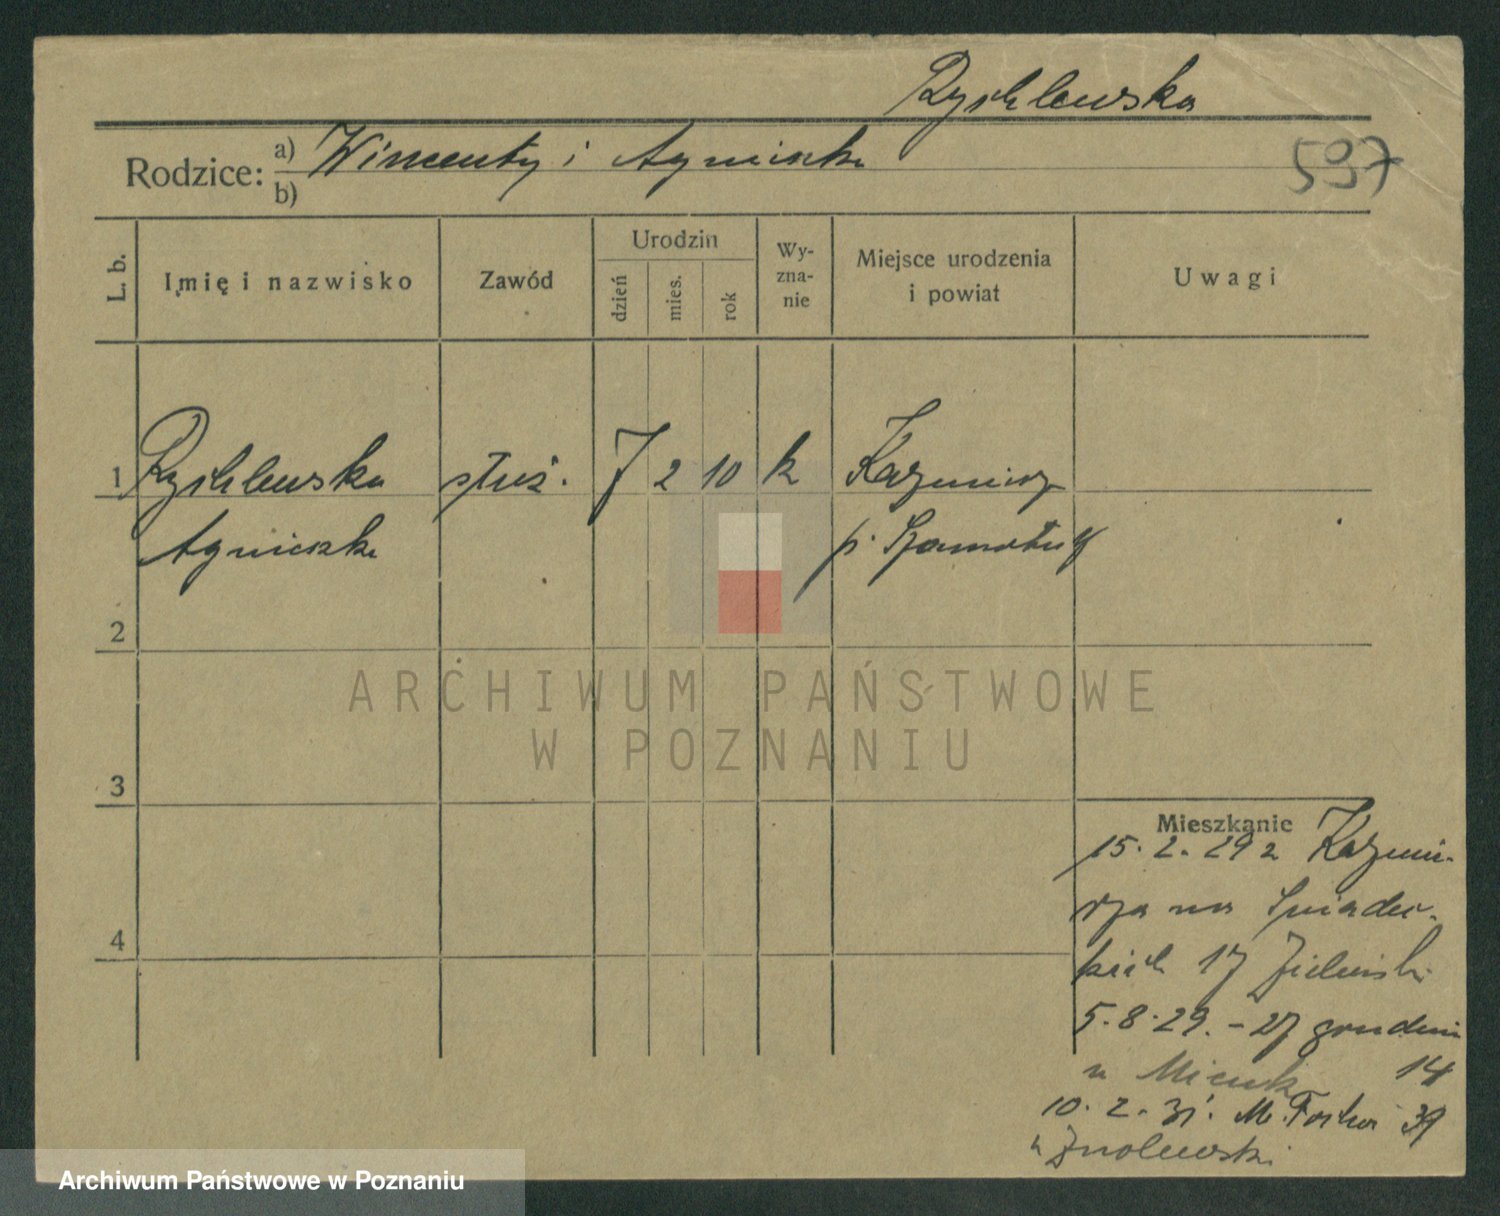 Rychlewska
Rodzice: a) Wincenty i Agnieszka
b)
597
L. b.
Imię i nazwisko
Zawód
Urodzin
dzień
mies.
rok
Wy-
zna-
nie
Miejsce urodzenia
i powiat
Uwagi
1 Rychlewska służ. 7 2 10 k Kazmierz
Agnieszka p. Szamotuły
2
3
4
Mieszkanie
15. 2. 29 z Kazmie-
rza na Śniadec-
kich 17 Zieliński
5. 8. 29. - 27 grudnia
14
10. 2. 31. M. Focha 39
ARCHIWUM PAŃSTWOWE
W POZNANIU
Archiwum Państwowe w Poznaniu